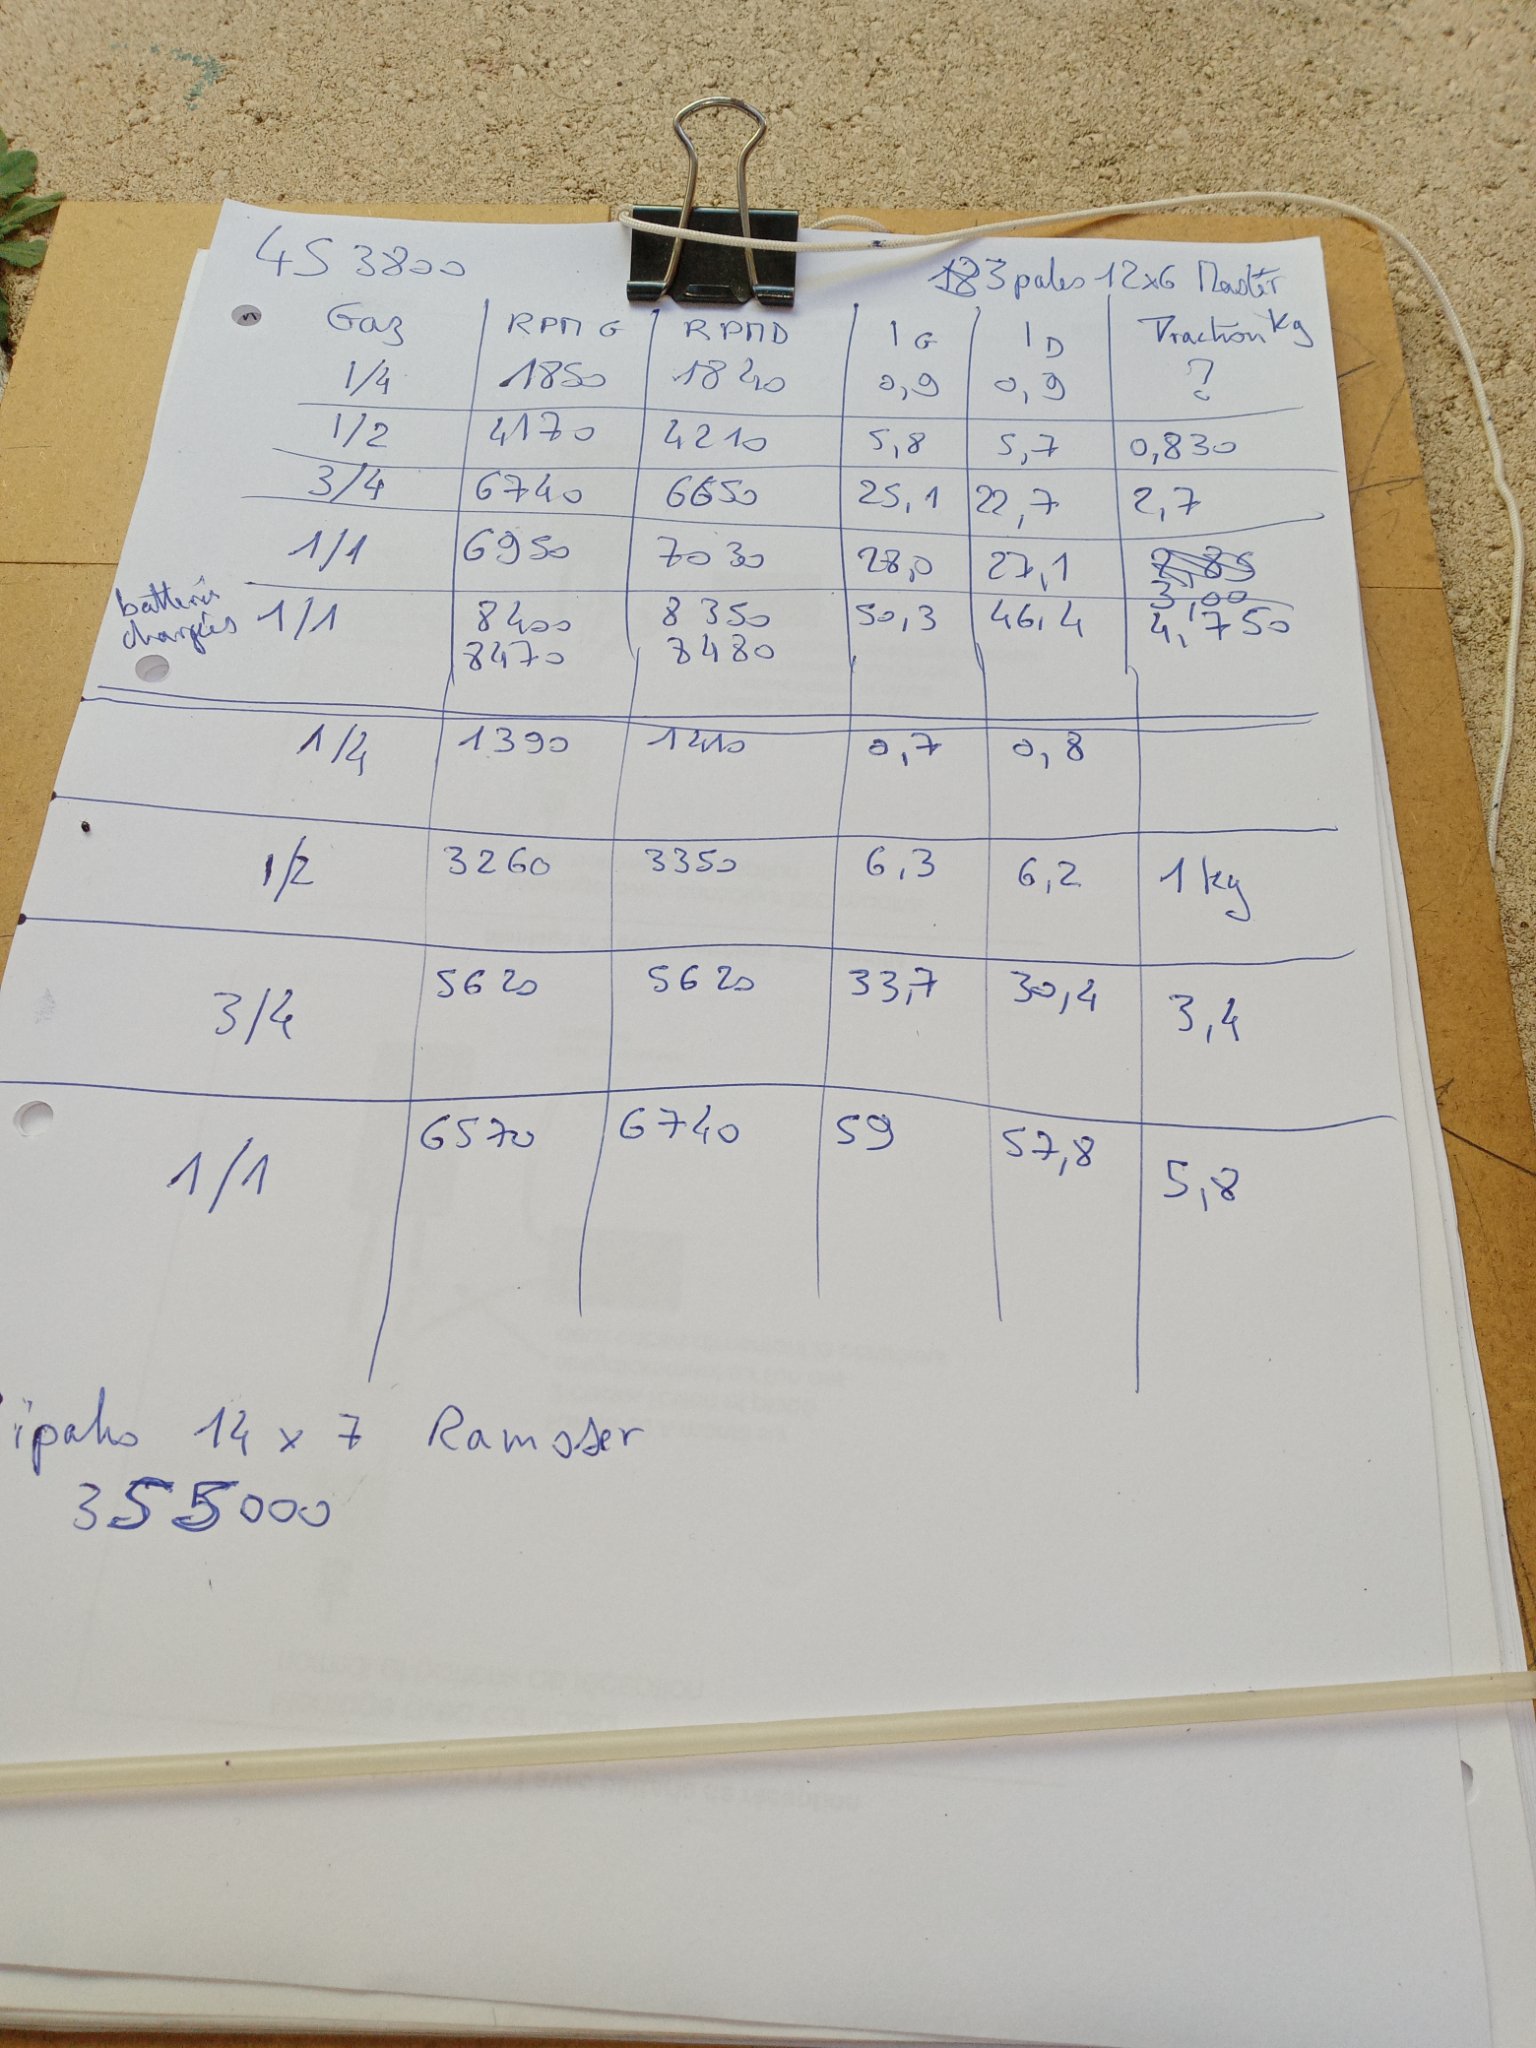 4S 3800
3 pales 12x6 Master
Gaz RPM G RPM D I G I D Traction Kg
1/4 1850 1840 0,9 0,9 ?
1/2 4170 4210 5,8 5,7 0,830
3/4 6740 6650 25,1 22,7 2,7
1/1 6950 7030 28,0 27,1 3,00
batteries chargées 1/1 8400 8350 50,3 46,4 4,750
8470 8480
1/4 1390 1410 0,7 0,8
1/2 3260 3350 6,3 6,2 1 kg
3/4 5620 5620 33,7 30,4 3,4
1/1 6570 6740 59 57,8 5,8
ipales 14 x 7 Ramoser
355000